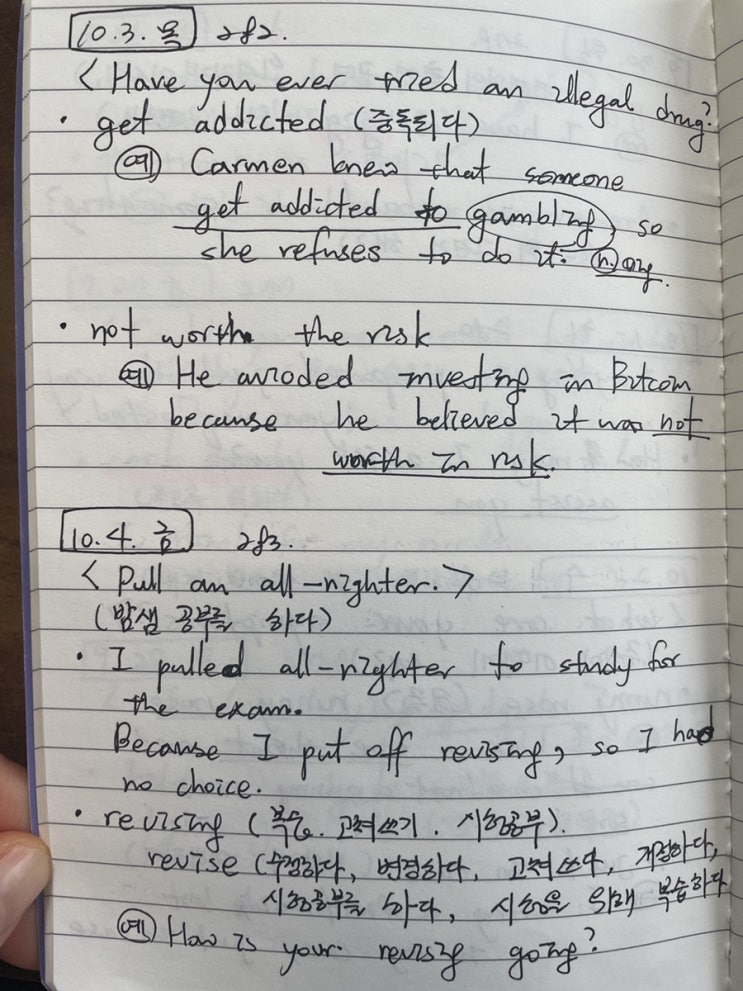 10.3. 목 282.
< Have you ever tried an illegal drug?
· get addicted (중독되다)
예 Carmen knew that someone
get addicted to gambling, so
she refuses to do it. n.ing.
· not worth the risk
예 He avoided investing in Bitcoin
because he believed it was not
worth in risk.
10.4. 금 283.
< Pull an all-nighter. >
(밤샘 공부를 하다)
· I pulled all-nighter to study for
the exam.
Because I put off revising, so I had
no choice.
· revising (복습. 고쳐쓰기. 시험공부).
revise (수정하다, 변경하다, 고쳐쓰다, 개정하다,
시험공부를 하다, 시험을 위해 복습하다
예 How is your revising going?